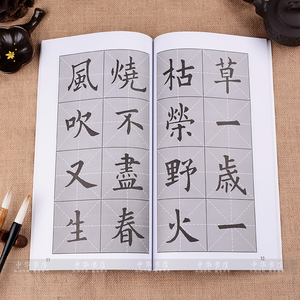 草一歳一
枯榮野火
燒不盡春
風吹又生